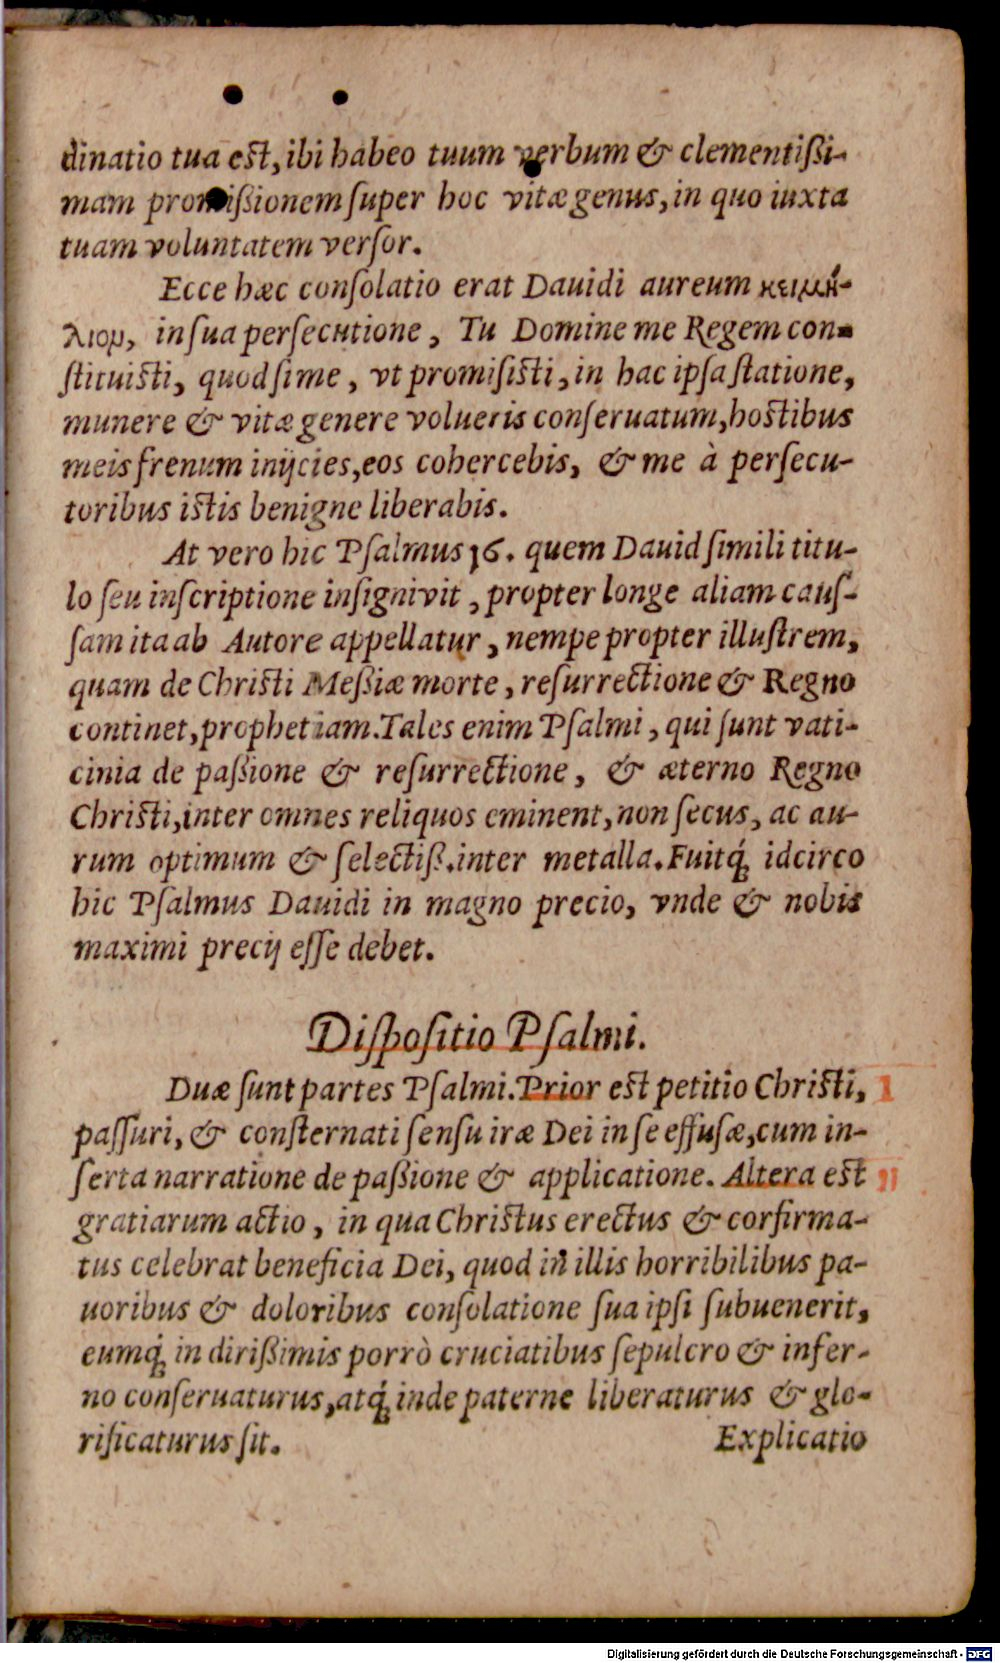 dinatio tua est, ibi habeo tuum verbum & clementißi-
mam promißionem ſuper hoc vitæ genus, in quo iuxta
tuam voluntatem verſor.
Ecce hæc conſolatio erat Dauidi aureum κειμή-
λιον, in ſua perſecutione, Tu Domine me Regem con-
ſtituiſti, quod ſi me, vt promiſiſti, in hac ipſa ſtatione,
munere & vitæ genere volueris conſeruatum, hoſtibus
meis frenum inijcies, eos cohercebis, & me à perſecu-
toribus iſtis benigne liberabis.
At vero hic Pſalmus 16. quem Dauid ſimili titu-
lo ſeu inſcriptione inſignivit, propter longe aliam cauſ-
ſam ita ab Autore appellatur, nempe propter illuſtrem,
quam de Chriſti Meßiæ morte, reſurrectione & Regno
continet, prophetiam. Tales enim Pſalmi, qui ſunt vati-
cinia de paßione & reſurrectione, & æterno Regno
Chriſti, inter omnes reliquos eminent, non ſecus, ac au-
rum optimum & ſelectiß. inter metalla. Fuitq́; idcirco
hic Pſalmus Dauidi in magno precio, vnde & nobis
maximi precij eſſe debet.
Diſpoſitio Pſalmi.
Duæ ſunt partes Pſalmi. Prior eſt petitio Chriſti, I
paſſuri, & conſternati ſenſu iræ Dei in ſe effuſæ, cum in-
ſerta narratione de paßione & applicatione. Altera eſt II
gratiarum actio, in qua Chriſtus erectus & corfirma-
tus celebrat beneficia Dei, quod in illis horribilibus pa-
uoribus & doloribus conſolatione ſua ipſi ſubuenerit,
eumq́; in dirißimis porrò cruciatibus ſepulcro & infer-
no conſeruaturus, atq́; inde paterne liberaturus & glo-
rificaturus ſit.
Explicatio
Digitalisierung gefördert durch die Deutsche Forschungsgemeinschaft - DFG